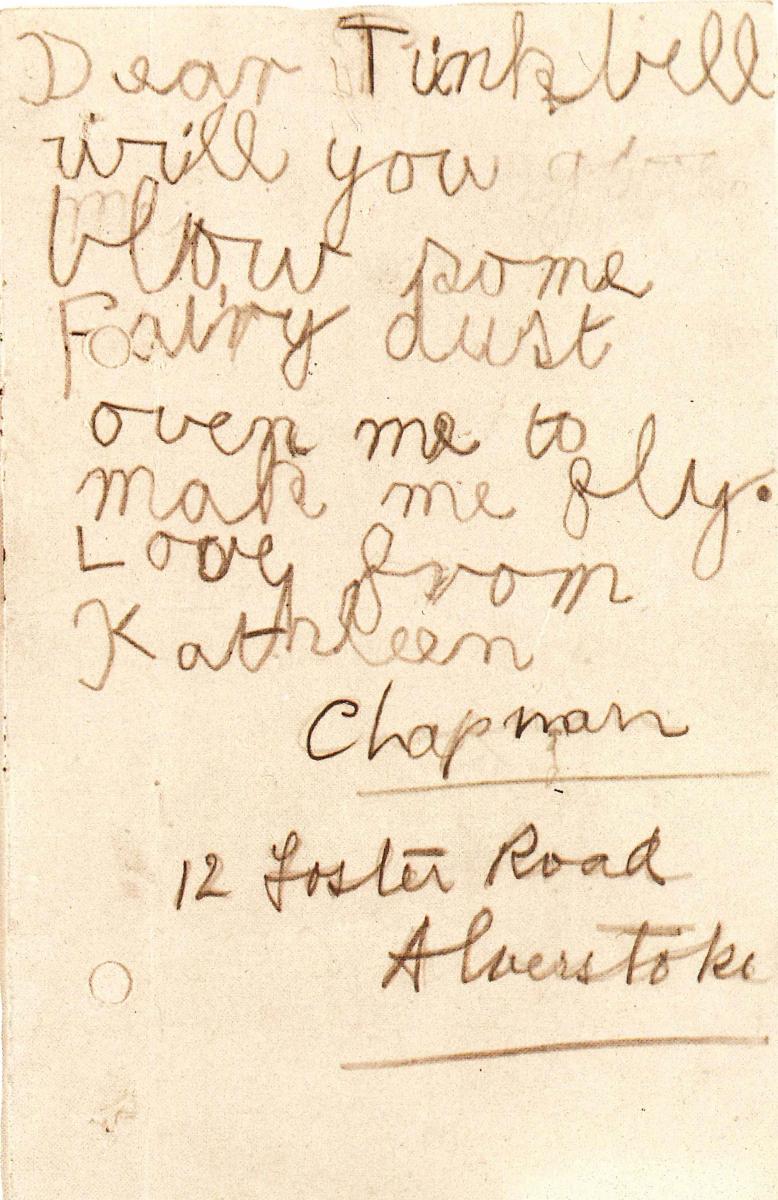 Dear Tinkbell
will you
blow some
Fairy dust
over me to
mak me fly.
Love from
Kathleen
Chapman
12 Foster Road
Alverstoke